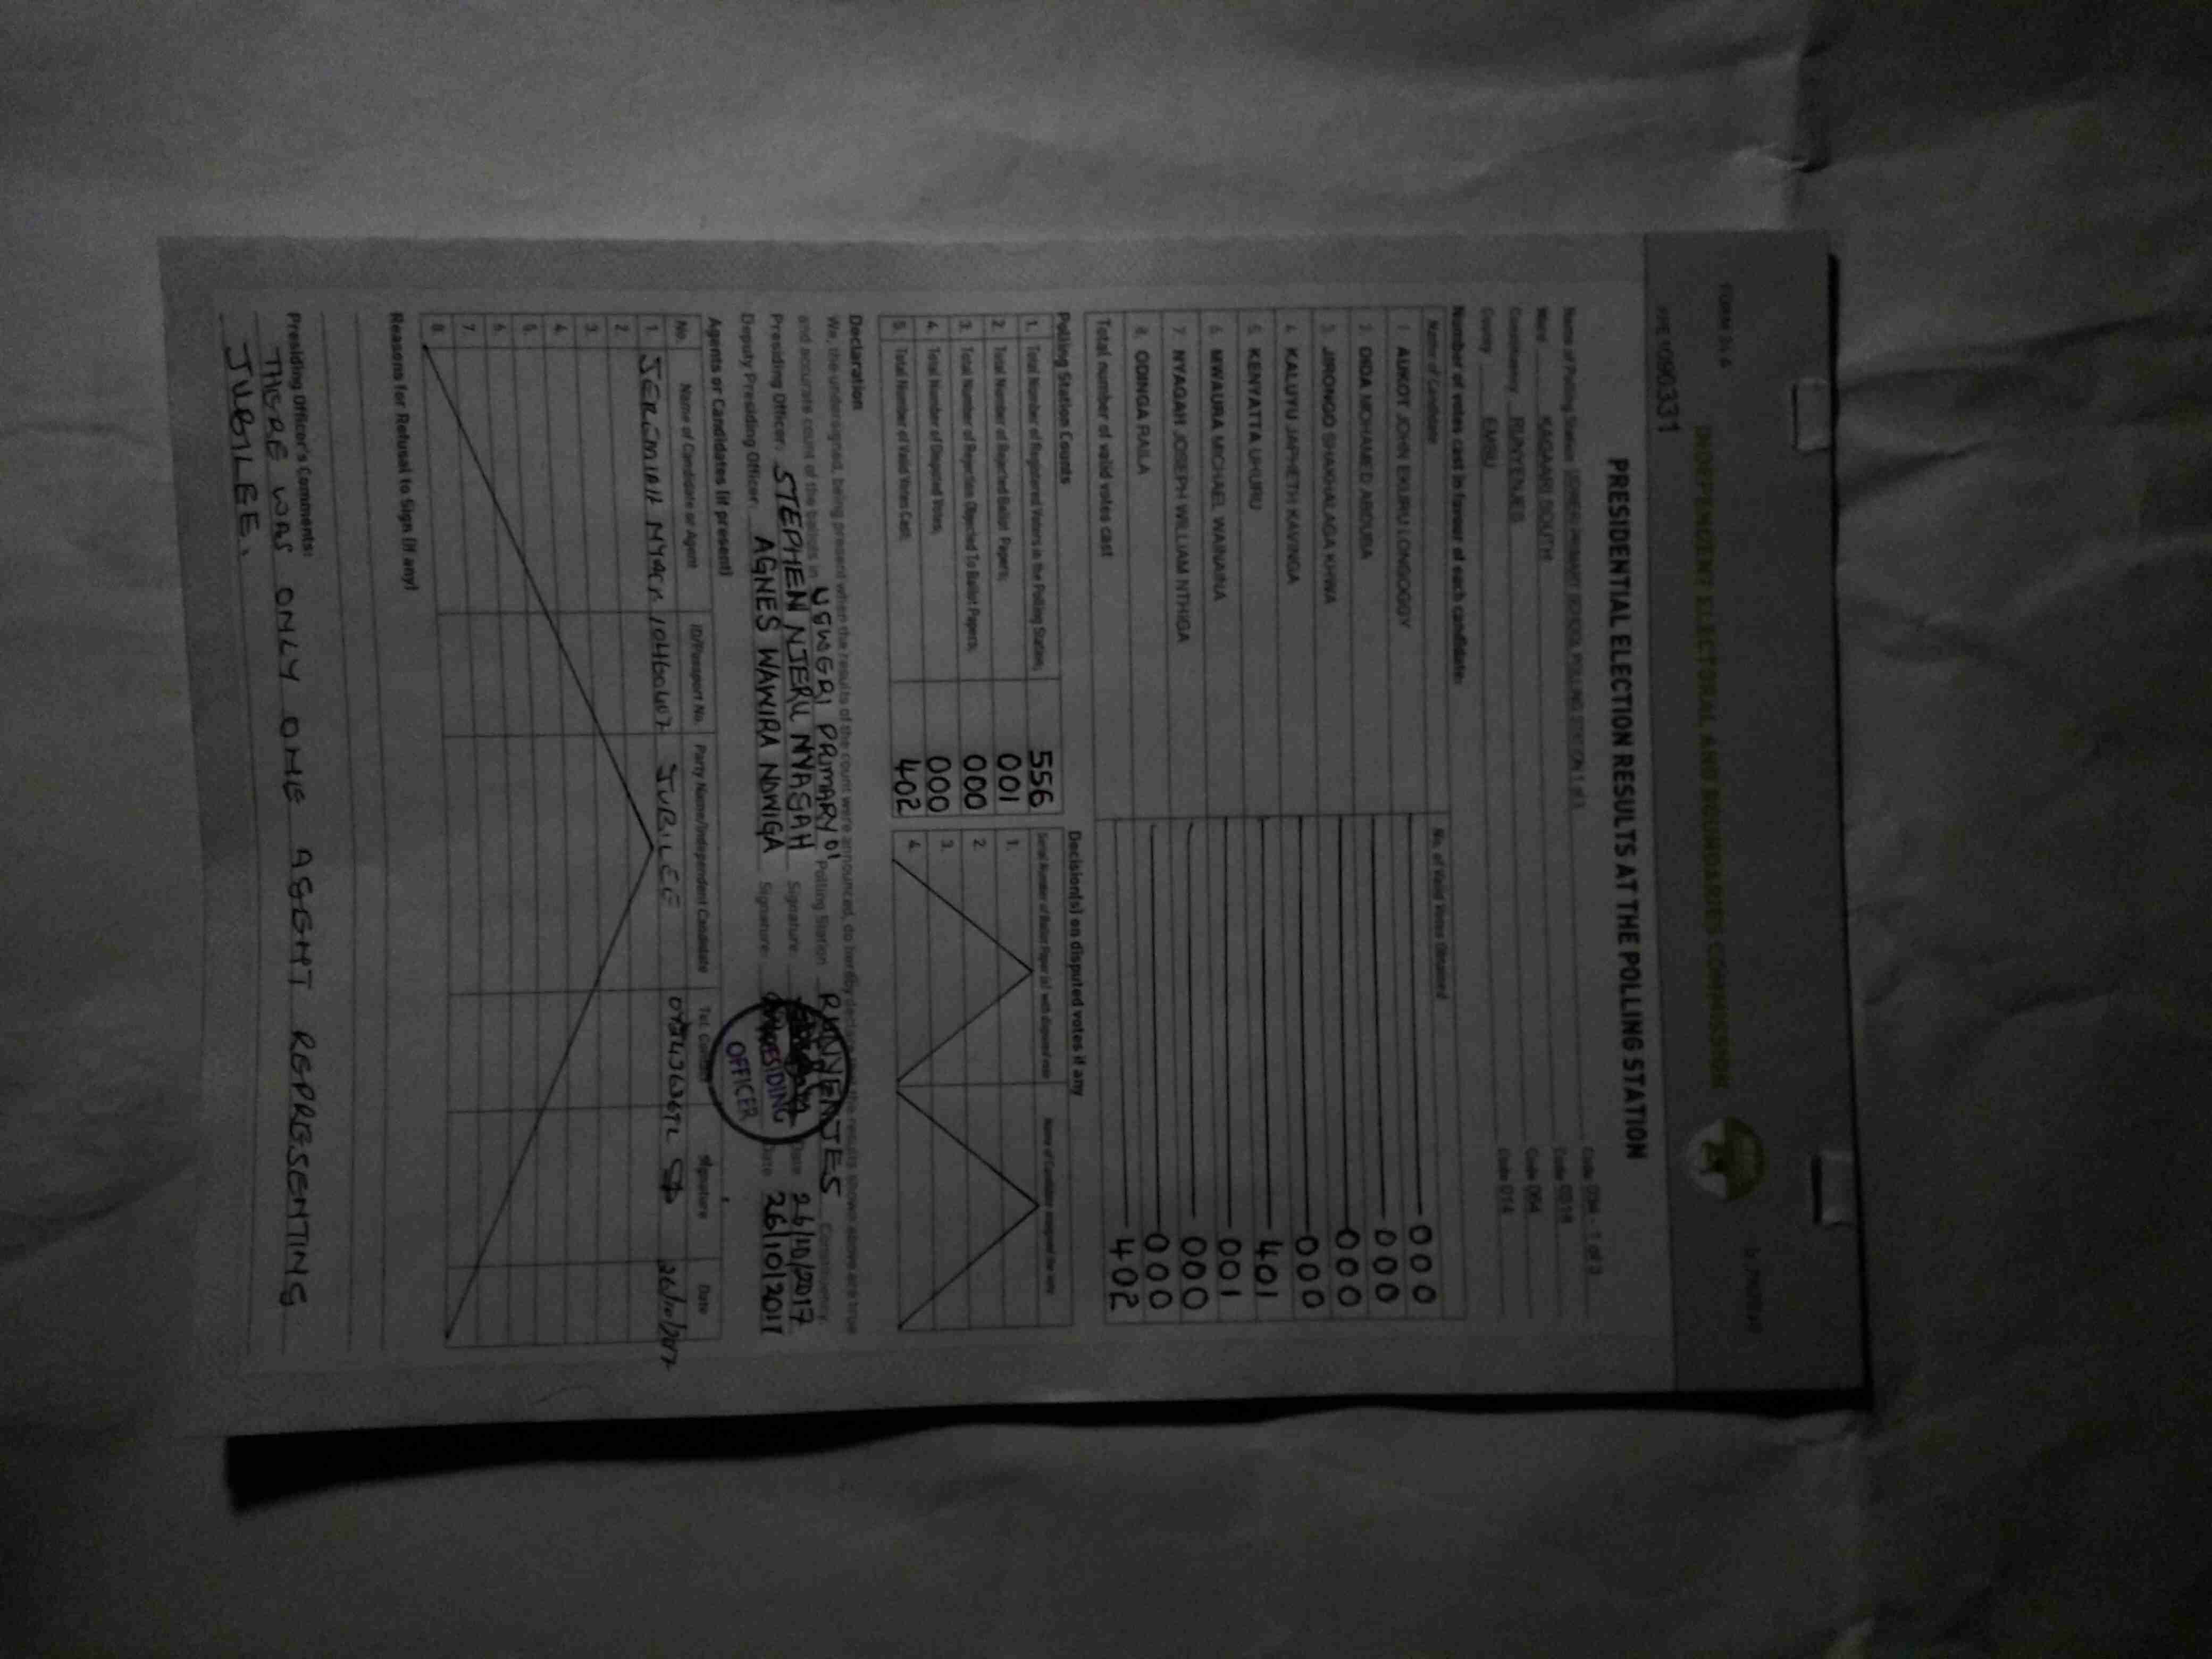 FORM 34 A
INDEPENDENT ELECTORAL AND BOUNDARIES COMMISSION
PRESIDENTIAL ELECTION RESULTS AT THE POLLING STATION
Name of Polling Station PRIMARY SCHOOL POLLING STATION 1 of 3 Code 094 - 1 of 3
Ward KAGAARI SOUTH Code 0314
Constituency RUNYENJES Code 064
County EMBU Code 014
Number of votes cast in favour of each candidate:
Name of Candidate No. of Valid Votes Obtained
1. AUKOT JOHN EKURU LONGOGGY 000
2. DIDA MOHAMED ABDUBA 000
3. JIRONGO SHAKHALAGA KHWA 000
4. KALUYU JAPHETH KAVINGA 000
5. KENYATTA UHURU 401
6. MWAURA MICHAEL WAINAINA 001
7. NYAGAH JOSEPH WILLIAM NTHIGA 000
8. ODINGA RAILA 000
Total number of valid votes cast 402
Polling Station Counts
1. Total Number of Registered Voters in the Polling Station; 556
2. Total Number of Rejected Ballot Papers; 001
3. Total Number of Rejection Objected To Ballot Papers; 000
4. Total Number of Disputed Votes; 000
5. Total Number of Valid Votes Cast; 402
Decision(s) on disputed votes if any
Serial Number of Ballot Paper (s) with disputed vote Name of Candidate
1.
2.
3.
4.
Declaration
We, the undersigned, being present when the results of the count were announced, do hereby declare that the results shown above are true
and accurate count of the ballots in PRIMARY 01 Polling Station RUNYENJES Constituency.
Presiding Officer: STEPHEN NJERU NYAGAH Signature: Date 26/10/2017
Deputy Presiding Officer: AGNES WAWIRA NDWIGA Signature: Date 26/10/2017
PRESIDING
OFFICER
Agents or Candidates (if present)
No. Name of Candidate or Agent ID/Passport No. Party Name/Independent Candidate Tel. Contact Signature Date
1. JEREMIAH JUBILEE
2.
3.
4.
5.
6.
7.
8.
Reasons for Refusal to Sign (if any)
Presiding Officer's Comments:
THERE WAS ONLY ONE AGENT REPRESENTING
JUBILEE.